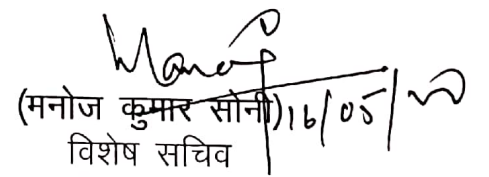 Manoj
(मनोज कुमार सोनी) 16/05/
विशेष सचिव